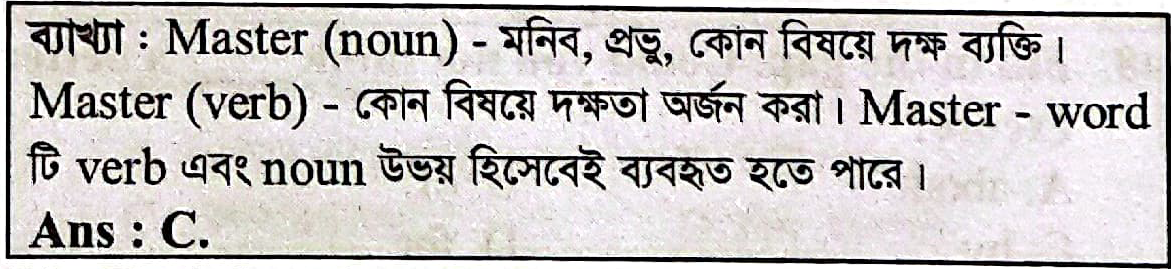 ব্যাখ্যা : Master (noun) - মনিব, প্রভু, কোন বিষয়ে দক্ষ ব্যক্তি।
Master (verb) - কোন বিষয়ে দক্ষতা অর্জন করা। Master - word
টি verb এবং noun উভয় হিসেবেই ব্যবহৃত হতে পারে।
Ans : C.